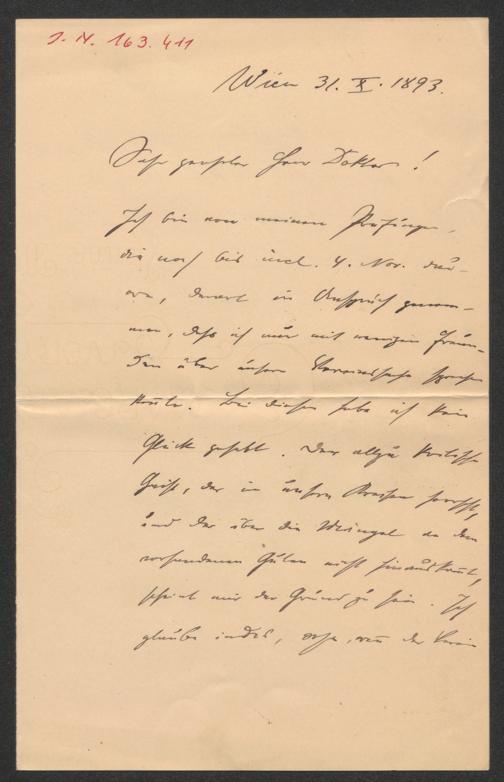 J. N. 163.411
Wien 31. X. 1893.
Sehr geehrter Herr Doktor!
Ich bin von meinen Prüfungen,
die noch bis incl. 4. Nov. dau-
ern, derart in Anspruch genom-
men, daß ich nur mit wenigen Freun-
den über unsere Vereinssache sprechen
konnte. Bei diesen habe ich kein
Glück gehabt. Der allzu kritische
Geist, der in unsren Kreisen herrscht,
und der über die Mängel an dem
vorhandenen Guten nicht hinauskommt,
scheint mir der Grund zu sein. Ich
glaube indes, daß, wenn der Verein